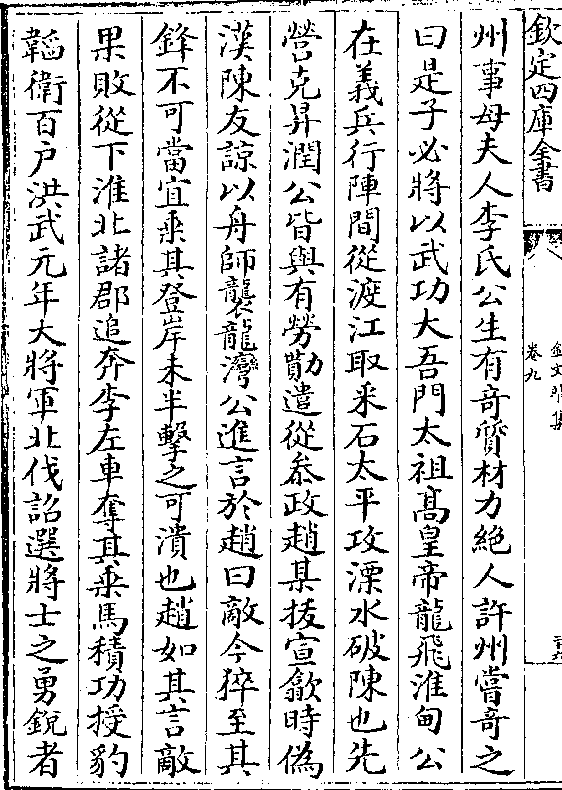 欽定四庫全書
金文靖集
卷九
州事母夫人李氏公生有竒質材力絶人許州嘗竒之
曰是子必將以武功大吾門太祖髙皇帝龍飛淮甸公
在義兵行陣間從渡江取采石太平攻溧水破陳也先
營克昇潤公皆與有勞勚遣從叅政趙某拔宣歙時偽
漢陳友諒以舟師襲龍灣公進言於趙曰敵今猝至其
鋒不可當宜乗其登岸未半擊之可潰也趙如其言敵
果敗從下淮北諸郡追奔李左車奪其乗馬積功授豹
韜衛百户洪武元年大將軍北伐詔選將士之勇銳者